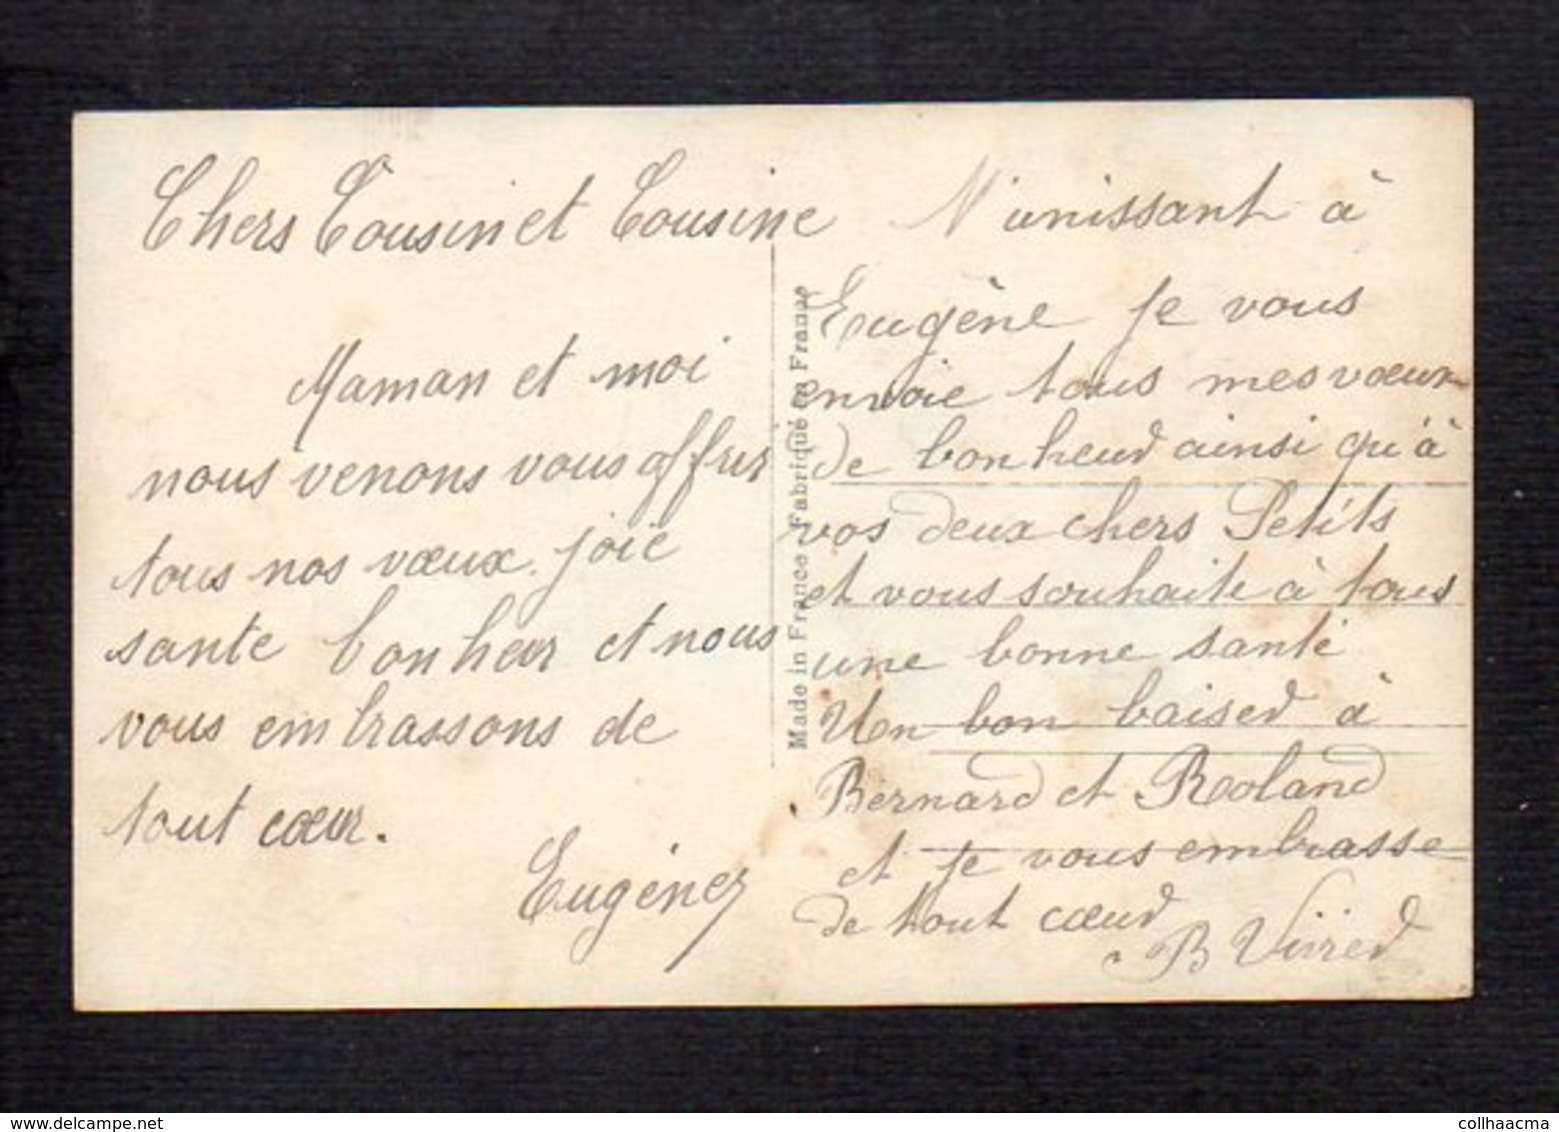 Chers Cousin et Cousine
Maman et moi
nous venons vous offrir
tous nos vœux joie
sante bonheur et nous
vous embrassons de
tout cœur.
Eugène
Made in France - Fabriqué en France
M'unissant à
Eugène je vous
envoie tous mes vœux
de bonheur ainsi qu'à
vos deux chers Petits
et vous souhaite à tous
une bonne santé
Un bon baiser à
Bernard et Roland
et je vous embrasse
de tout cœur
B
www.delcampe.net
collhaacma